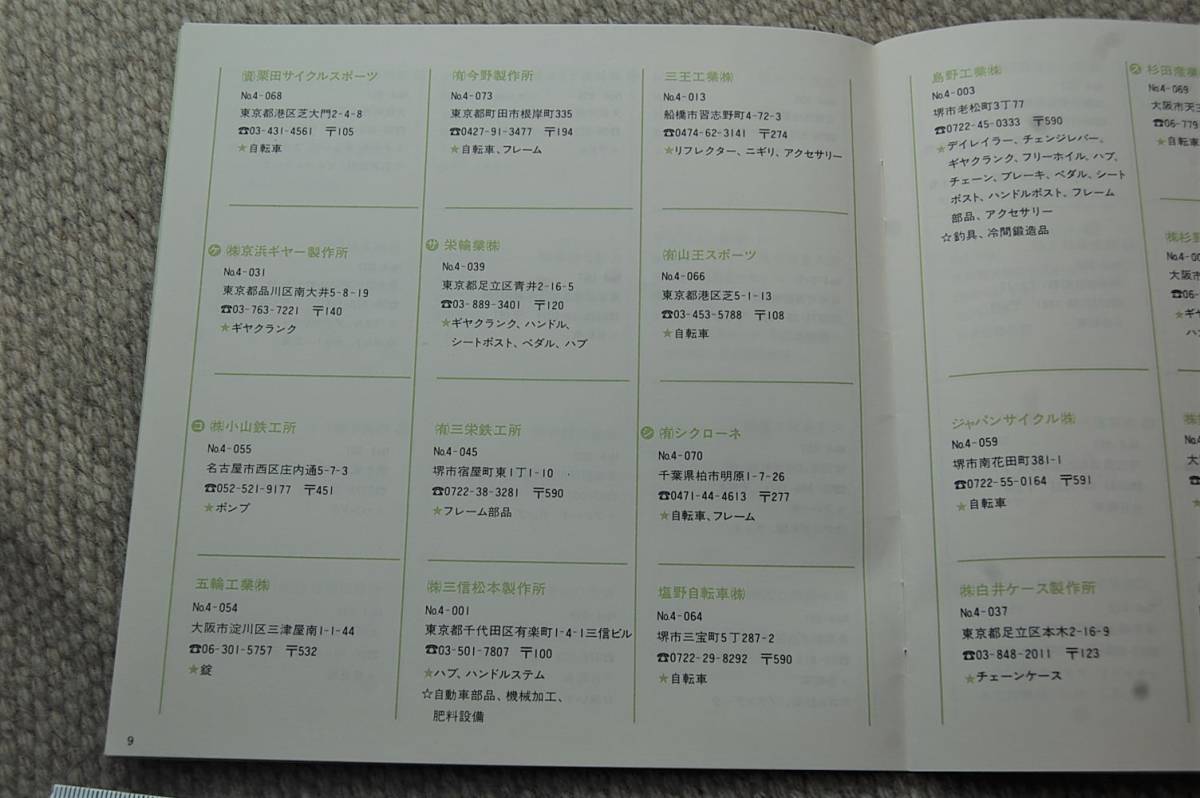 ㈾栗田サイクルスポーツ
No.4-068
東京都港区芝大門2-4-8
☎03-431-4561 〒105
★自転車
㋘ ㈱京浜ギヤー製作所
No.4-031
東京都品川区南大井5-8-19
☎03-763-7221 〒140
★ギヤクランク
㋙ ㈱小山鉄工所
No.4-055
名古屋市西区庄内通5-7-3
☎052-521-9177 〒451
★ポンプ
五輪工業㈱
No.4-054
大阪市淀川区三津屋南1-1-44
☎06-301-5757 〒532
★錠
㈲今野製作所
No.4-073
東京都町田市根岸町335
☎0427-91-3477 〒194
★自転車、フレーム
㋚ 栄輪業㈱
No.4-039
東京都足立区青井2-16-5
☎03-889-3401 〒120
★ギヤクランク、ハンドル、
シートポスト、ペダル、ハブ
㈲三栄鉄工所
No.4-045
堺市宿屋町東1丁1-10
☎0722-38-3281 〒590
★フレーム部品
㈱三信松本製作所
No.4-001
東京都千代田区有楽町1-4-1三信ビル
☎03-501-7807 〒100
★ハブ、ハンドルステム
☆自動車部品、機械加工、
肥料設備
三王工業㈱
No.4-013
船橋市習志野町4-72-3
☎0474-62-3141 〒274
★リフレクター、ニギリ、アクセサリー
㈲山王スポーツ
No.4-066
東京都港区芝5-1-13
☎03-453-5788 〒108
★自転車
㋛ ㈲シクローネ
No.4-070
千葉県柏市明原1-7-26
☎0471-44-4613 〒277
★自転車、フレーム
塩野自転車㈱
No.4-064
堺市三宝町5丁287-2
☎0722-29-8292 〒590
★自転車
9
島野工業㈱
No.4-003
堺市老松町3丁77
☎0722-45-0333 〒590
★デイレイラー、チェンジレバー、
ギヤクランク、フリーホイル、ハブ、
チェーン、ブレーキ、ペダル、シート
ポスト、ハンドルポスト、フレーム
部品、アクセサリー
☆釣具、冷間鍛造品
ジャパンサイクル㈱
No.4-059
堺市南花田町381-1
☎0722-55-0164 〒591
★自転車
㈱白井ケース製作所
No.4-037
東京都足立区本木2-16-9
☎03-848-2011 〒123
★チェーンケース
㋜ 杉田産業
No.4-069
大阪市天
☎06-779
★自転車
㈱杉野
No.4-00
大阪市
☎06-
★ギヤ